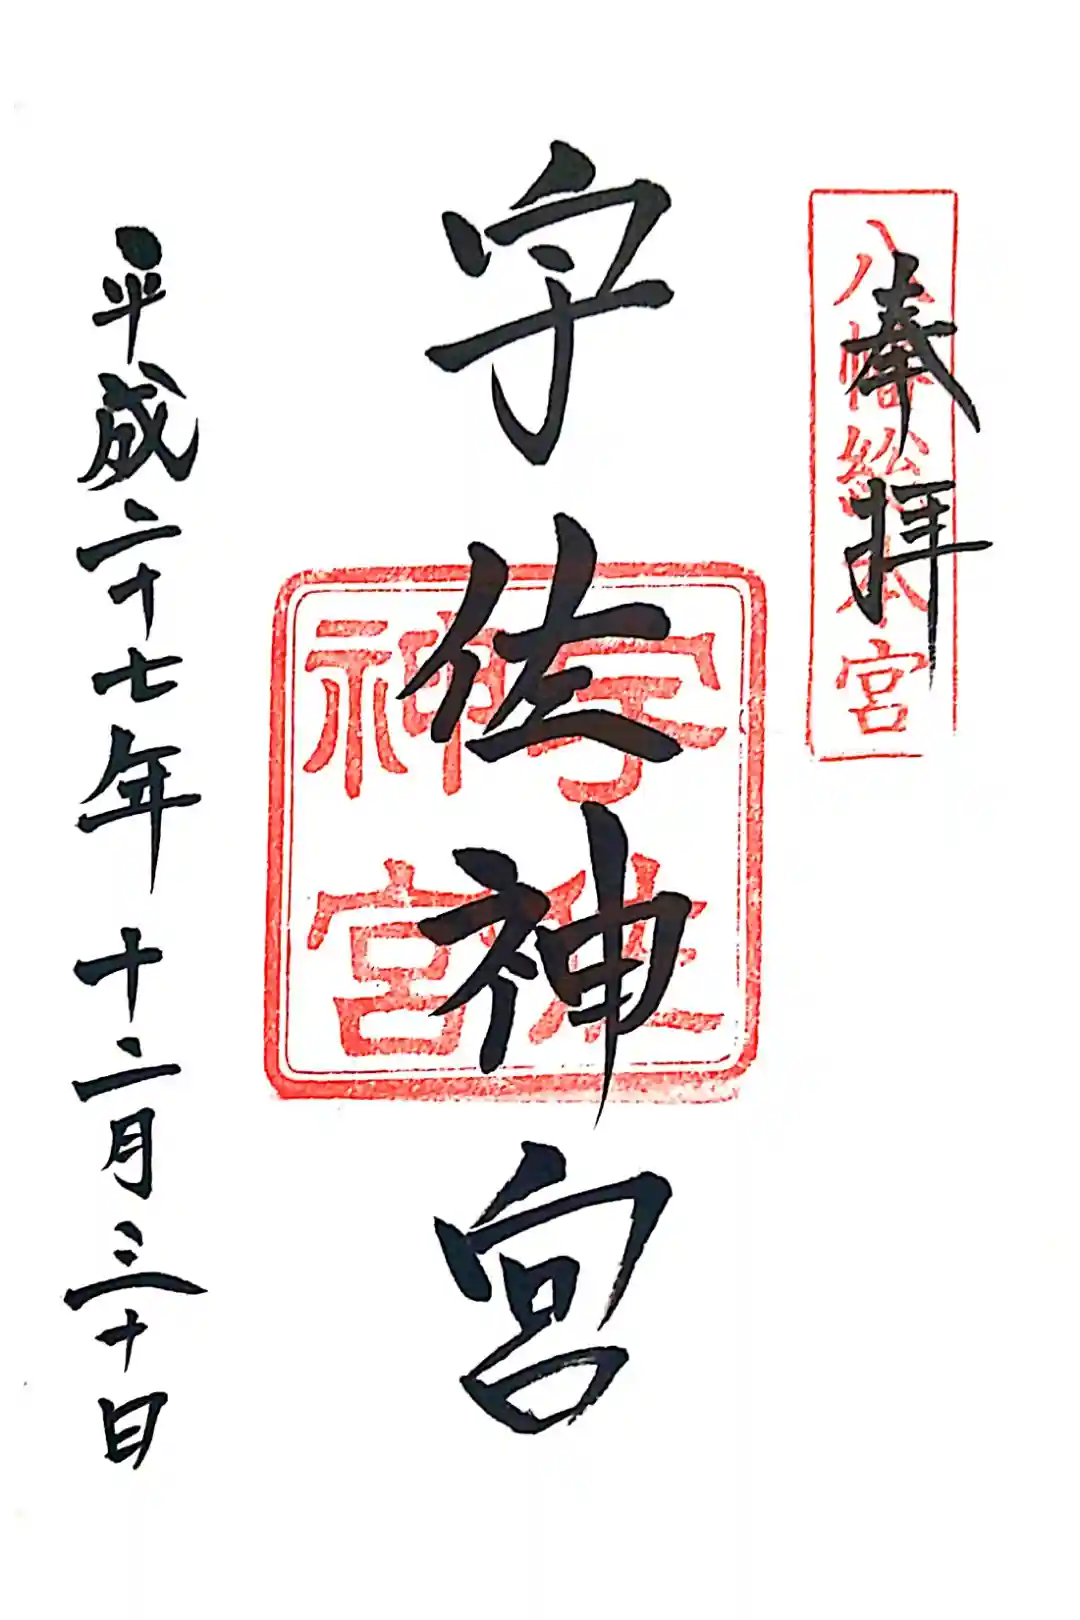 奉拝
八幡総本宮
宇佐神宮
宇佐神宮
平成二十七年 十二月三十日